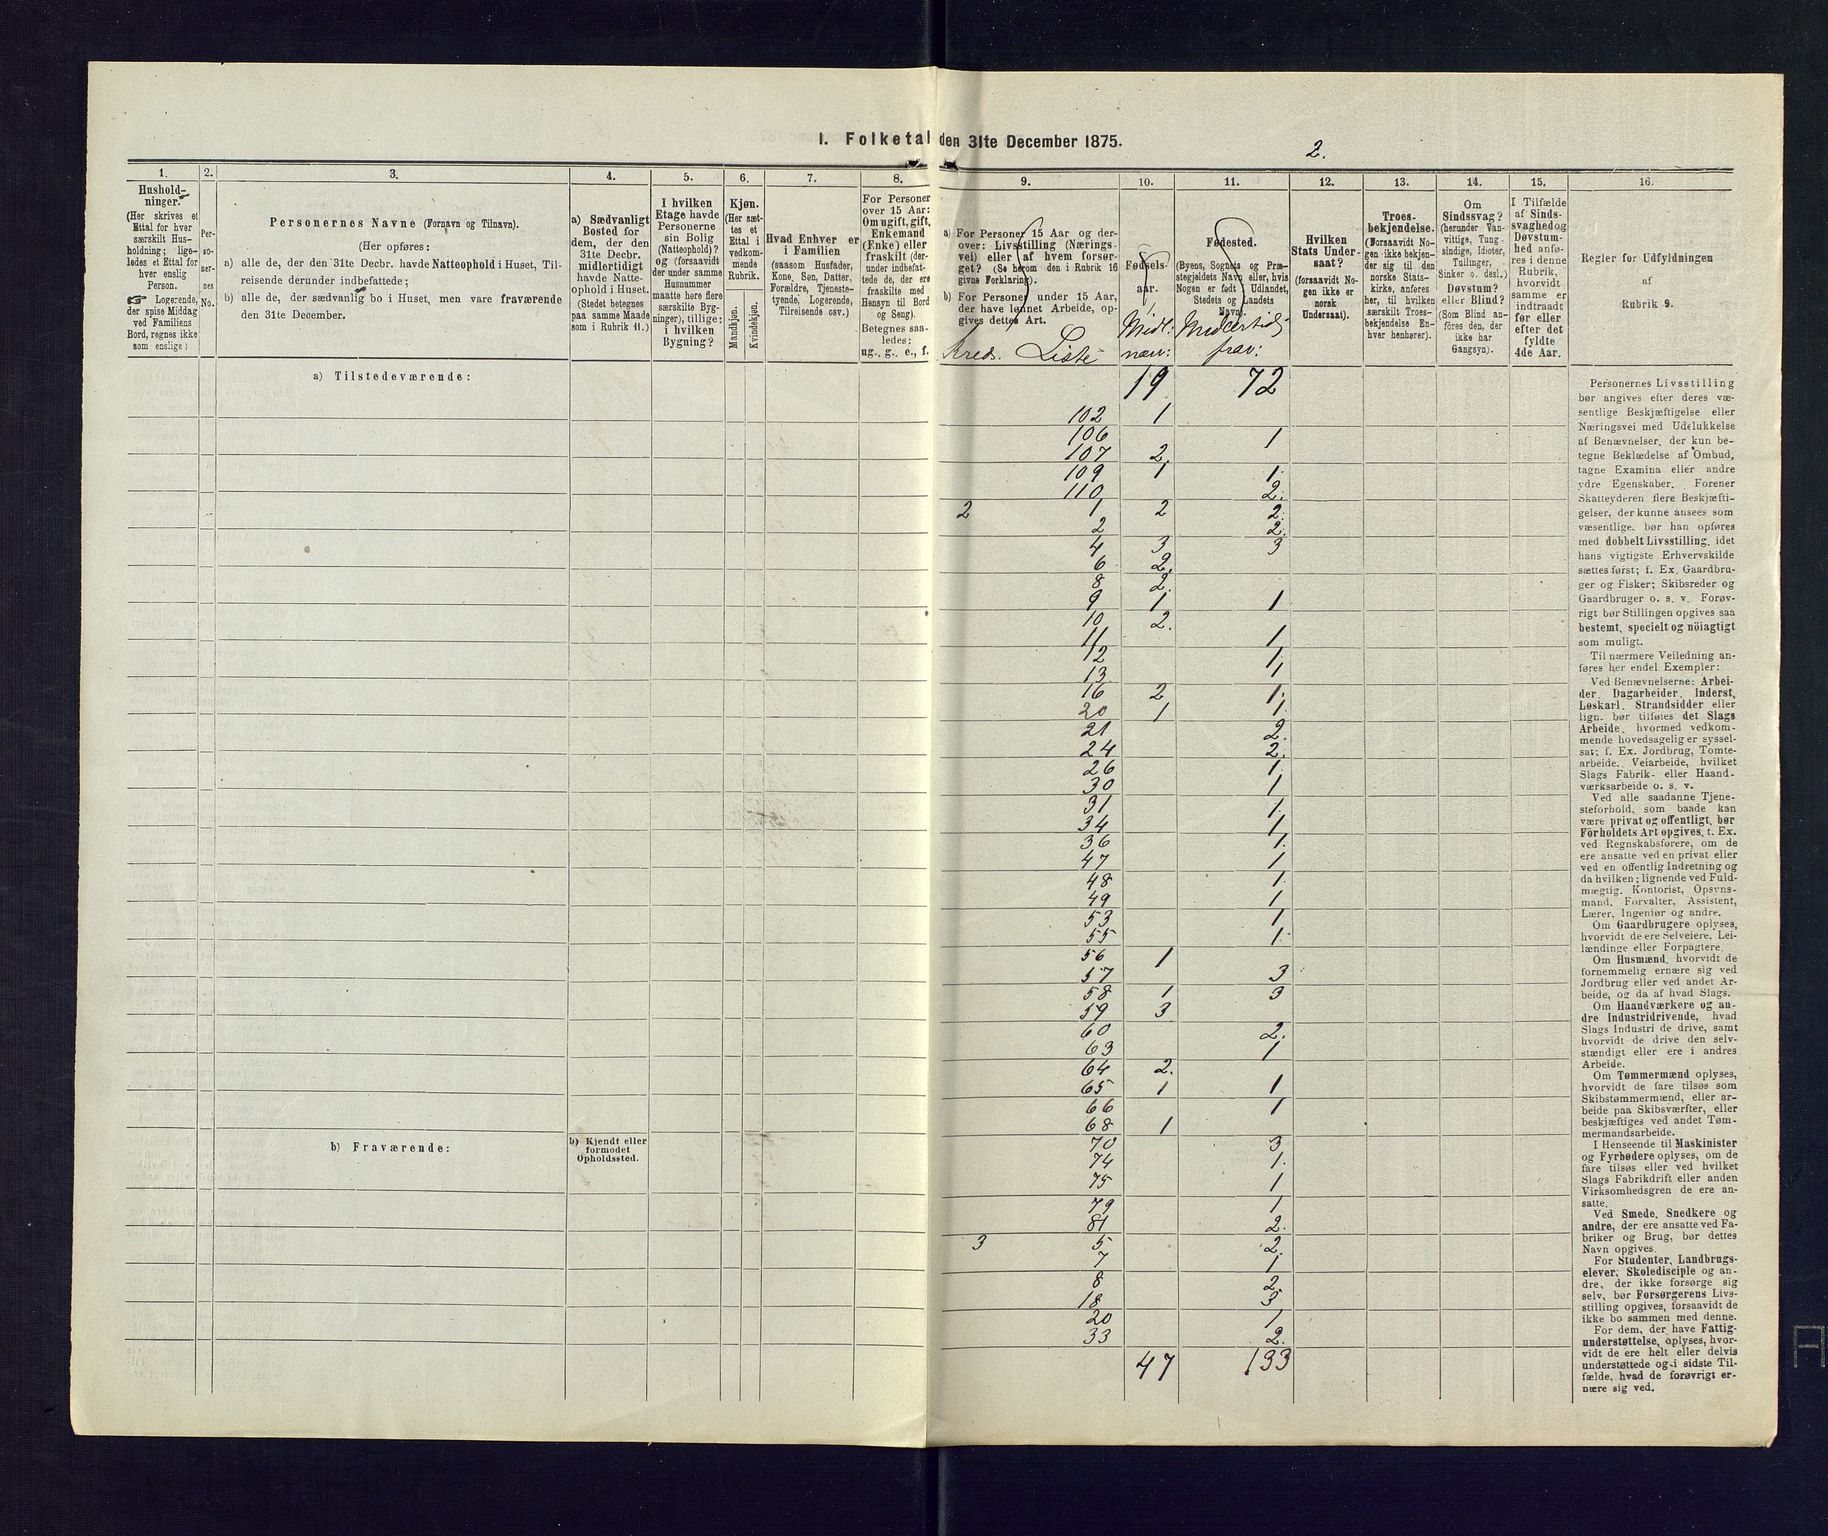 I. Folketal den 31te December 1875.
2.
1.
2.
3.
4.
5.
6.
7.
8.
9.
10.
11.
12.
13.
14.
15.
16.
Hushold-
ninger.
(Her skrives et
Ettal for hver
særskilt Hus-
holdning; lige-
ledes et Ettal for
hver enslig
Person.
☞ Logerende,
der spise Middag
ved Familiens
Bord, regnes ikke
som enslige)
Per-
so-
ner-
nes
No.
Personernes Navne (Fornavn og Tilnavn).
(Her opføres:
a) alle de, der den 31te Decbr. havde Natteophold i Huset, Til-
reisende derunder indbefattede;
b) alle de, der sædvanlig bo i Huset, men vare fraværende
den 31te December.
a) Sædvanligt
Bosted for
dem, der den
31te Decbr.
midlertidigt
havde Natte-
ophold i Huset.
(Stedet betegnes
paa samme Maade
som i Rubrik 11.)
I hvilken
Etage havde
Personerne
sin Bolig
(Natteophold)?
og (forsaavidt
der under samme
Husnummer
maatte høre flere
særskilte Byg-
ninger), tillige:
i hvilken
Bygning?
Kjøn.
(Her sæt-
tes et
Ettal i
vedkom-
mende
Rubrik.
Mandkjøn.
Kvindekjøn.
Hvad Enhver er
i Familien
(saasom Husfader,
Kone, Søn, Datter,
Forældre, Tjeneste-
tyende, Logerende,
Tilreisende osv.)
For Personer
over 15 Aar:
Om ugift, gift,
Enkemand
(Enke) eller
fraskilt (der-
under indbefat-
tede de, der ere
fraskilte med
Hensyn til Bord
og Seng).
Betegnes saa-
ledes:
ug., g., e., f.
a) For Personer 15 Aar og der-
over: Livsstilling (Nærings-
vei) eller af hvem forsør-
get? (Se herom den i Rubrik 16
givne Forklaring).
b) For Personer under 15 Aar,
der have lønnet Arbeide, op-
gives dettes Art.
Kreds. Liste
Fødsels-
aar.
Midl:
nærv:
Fødested.
(Byens, Sognets og Præ-
stegjeldets Navn eller, hvis
Nogen er født i Udlandet,
Stedets og Landets
Navn).
Midlertidig
frav:
Hvilken
Stats Under-
saat?
(forsaavidt No-
gen ikke er
norsk
Undersaat).
Troes-
bekjendelse.
(Forsaavidt No-
gen ikke bekjen-
der sig til den
norske Stats-
kirke, anføres
her, til hvilken
særskilt Troes-
bekjendelse En-
hver henhører).
Om
Sindssvag?
(herunder Van-
vittige, Tung-
sindige, Idioter,
Tullinger,
Sinker o. desl.)
Døvstum?
eller Blind?
(Som Blind an-
føres den, der
ikke har
Gangsyn).
I Tilfælde
af Sinds-
svaghed og
Døvstum-
hed anfø-
res i denne
Rubrik,
hvorvidt
samme er
indtraadt
før eller
efter det
fyldte
4de Aar.
Regler for Udfyldningen
af
Rubrik 9.
a) Tilstedeværende:
19 72
102 1
106 1
107 2
109 1 1
110 2
2 1 2 2
2 2
4 3 3
6 2
8 2
9 1 1
10 2
11 1
12 1
13 1
16 2 1
20 1 1
21 2
24 2
26 1
30 1
31 1
34 1
36 1
47 1
48 1
49 1
53 1
55 1
56 1
57 3
58 1 3
59 3
60 2
63 1
64 2
65 1 1
66 1
68 1
70 3
74 1
75 1
79 1
81 2
3 5 2
7 1
8 2
18 3
20 1
33 2
47 133
b) Fraværende:
b) Kjendt eller
formodet
Opholdssted.
Personernes Livsstilling
bør angives efter deres væ-
sentlige Beskjæftigelse eller
Næringsvei med Udelukkelse
af Benævnelser, der kun be-
tegne Beklædelse af Ombud,
tagne Examina eller andre
ydre Egenskaber. Forener
Skatteyderen flere Beskjæfti-
gelser, der kunne ansees som
væsentlige, bør han opføres
med dobbelt Livsstilling, idet
hans vigtigste Erhvervskilde
sættes først; f. Ex. Gaardbru-
ger og Fisker; Skibsreder og
Gaardbruger o. s. v. Forøv-
rigt bør Stillingen opgives saa
bestemt, specielt og nöiagtigt
som muligt.
Til nærmere Veiledning an-
føres her endel Exempler:
Ved Benævnelserne: Arbei-
der, Dagarbeider, Inderst,
Løskarl, Strandsidder eller
lign. bør tilføies det Slags
Arbeide, hvormed vedkom-
mende hovedsagelig er syssel-
sat; f. Ex. Jordbrug, Tomte-
arbeide, Veiarbeide, hvilket
Slags Fabrik- eller Haand-
værksarbeide o. s. v.
Ved alle saadanne Tjene-
steforhold, som baade kan
være privat og offentligt, bør
Forholdets Art opgives, t. Ex.
ved Regnskabsførere, om de
ere ansatte ved en privat eller
ved en offentlig Indretning og
da hvilken; lignende ved Fuld-
mægtig, Kontorist, Opsyns-
mand, Forvalter, Assistent,
Lærer, Ingeniør og andre.
Om Gaardbrugere oplyses,
hvorvidt de ere Selveiere, Lei-
lændinge eller Forpagtere.
Om Husmænd, hvorvidt de
fornemmelig ernære sig ved
Jordbrug eller ved andet Ar-
beide, og da af hvad Slags.
Om Haandværkere og an-
dre Industridrivende, hvad
Slags Industri de drive, samt
hvorvidt de drive den selv-
stændigt eller ere i andres
Arbeide.
Om Tømmermænd oplyses,
hvorvidt de fare tilsøs som
Skibstømmermænd, eller ar-
beide paa Skibsværfter, eller
beskjæftiges ved andet Tøm-
mermandsarbeide.
I Henseende til Maskinister
og Fyrbødere oplyses, om de
fare tilsøs eller ved hvilket
Slags Fabrikdrift eller anden
Virksomhedsgren de ere an-
satte.
Ved Smede, Snedkere og
andre, der ere ansatte ved Fa-
briker og Brug, bør dettes
Navn opgives.
For Studenter, Landbrugs-
elever, Skoledisciple og an-
dre, der ikke forsørge sig
selv, bør Forsørgerens Livs-
stilling opgives, forsaavidt de
ikke bo sammen med denne.
For dem, der have Fattig-
understøttelse, oplyses, hvor-
vidt de ere helt eller delvis
understøttede og i sidste Til-
fælde, hvad de forøvrigt er-
nære sig ved.